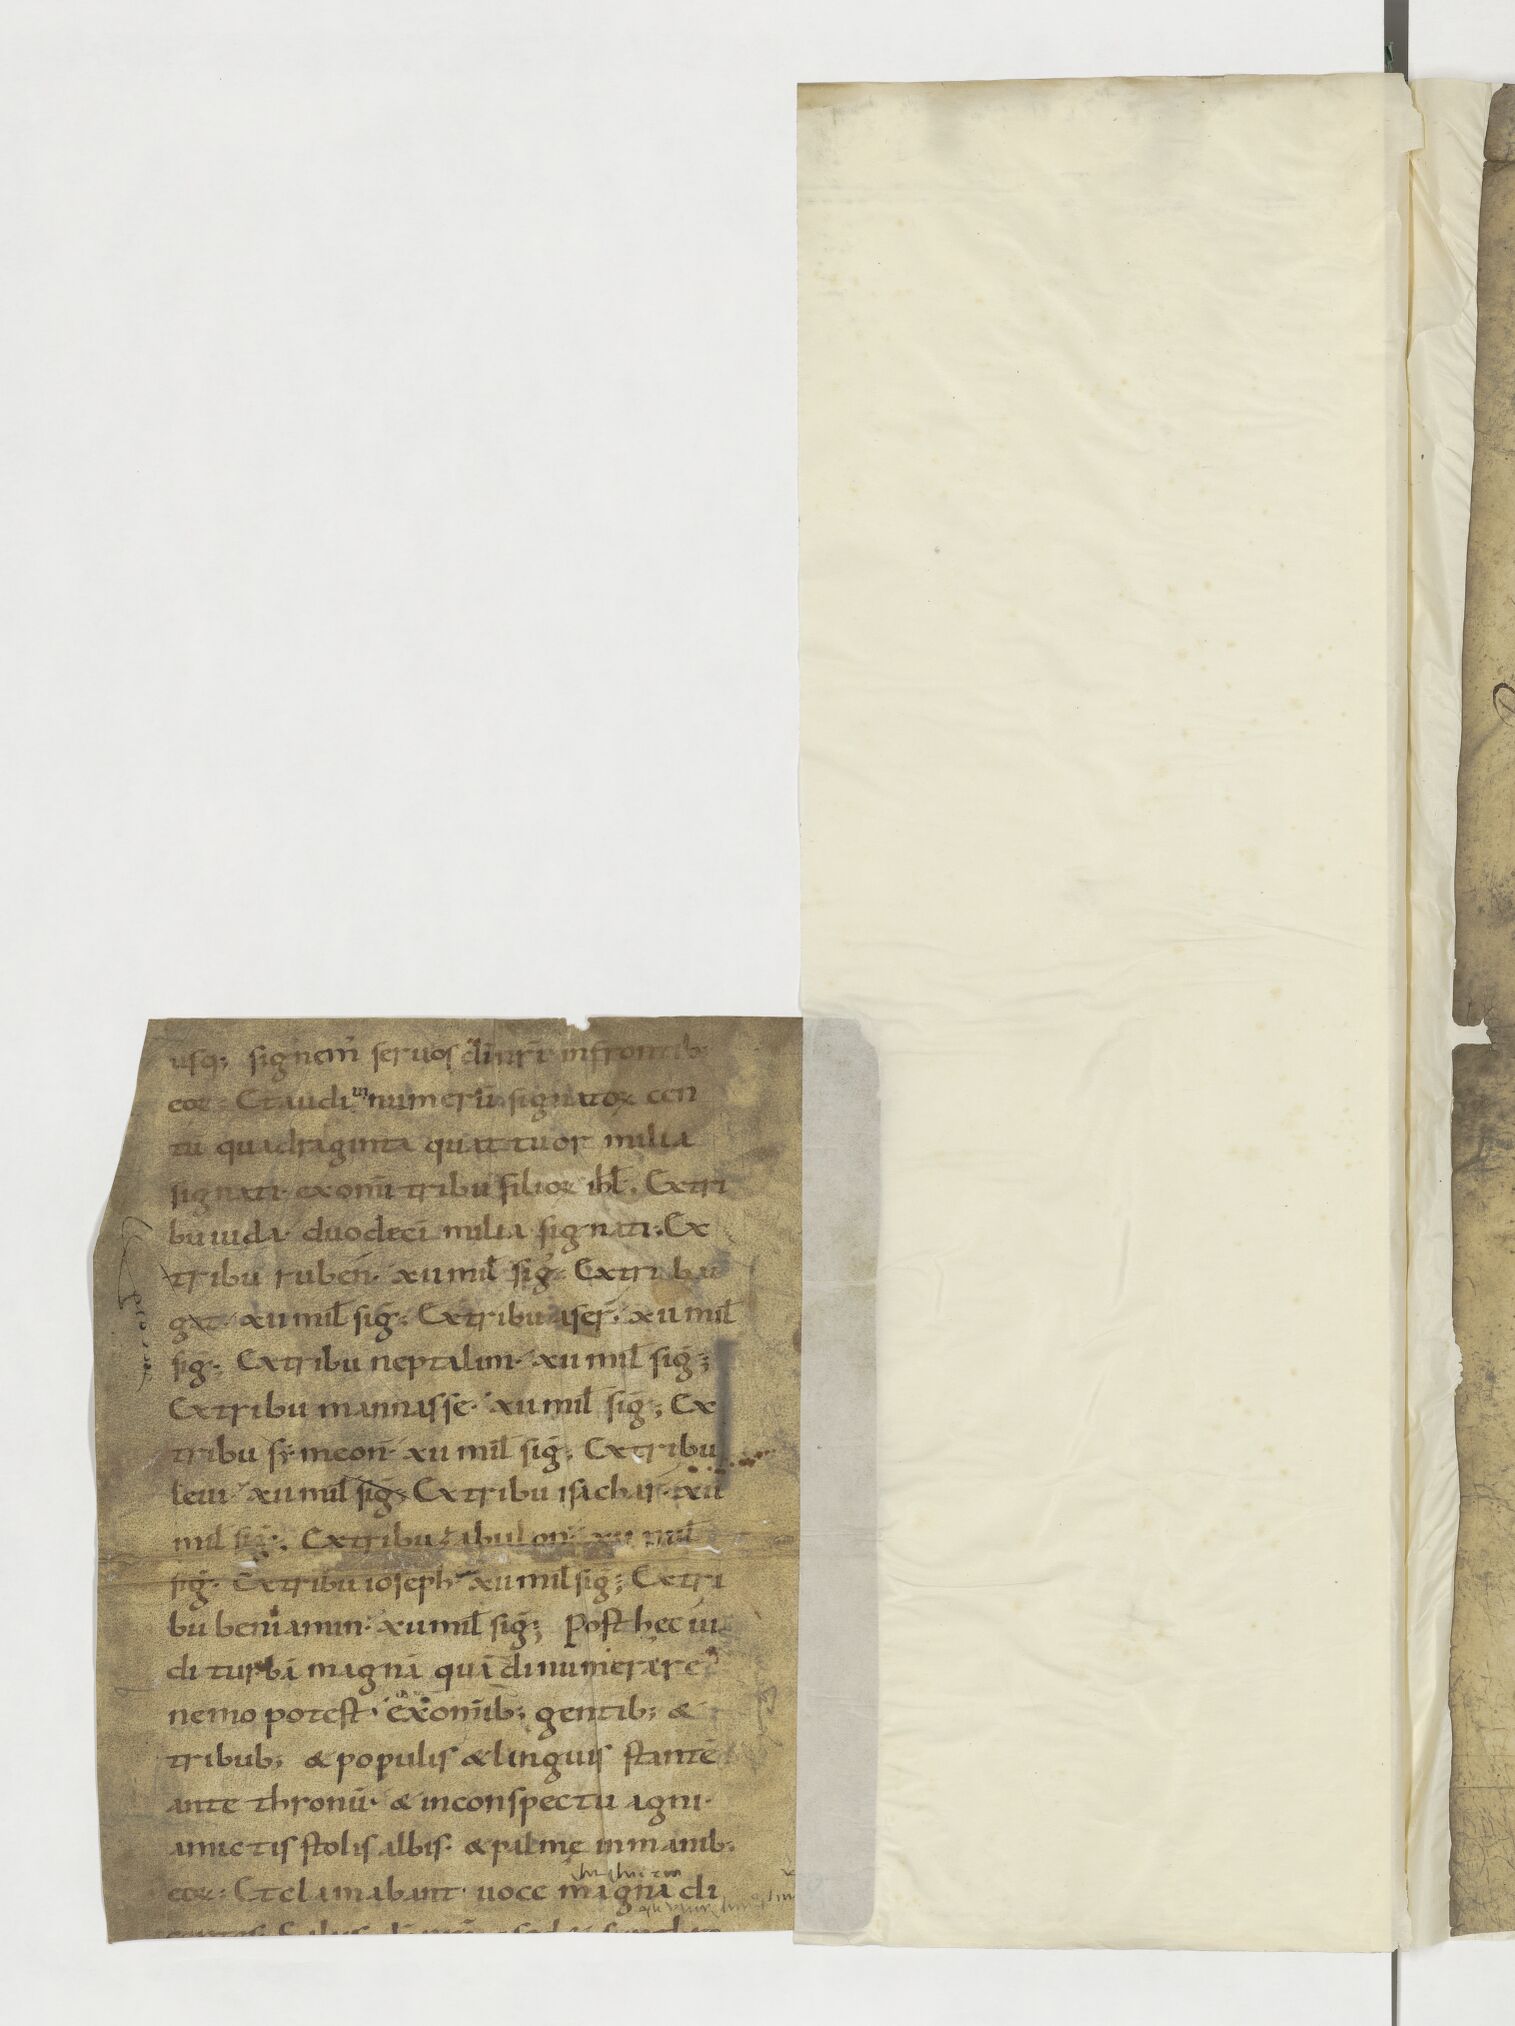 usq; signem᷒ seruos di nr̄i in frontib;
eoꝝ. Et audi uı numerū signatoꝝ cen
tū quadraginta quattuor milia
signati ex omī tribu filioꝝ iſrƚ. Ex tri
bu iuda duodeci milia signati. Ex
tribu ruben. xii miƚ sig̅. Ex tribu
gat. xii miƚ sig̅. Ex tribu aser. xii miƚ
sig̅; Ex tribu neptalim. xii miƚ sig̅;
Ex tribu mannasse. xii miƚ sig̅; Ex
tribu symeon. xii miƚ sig̅. Ex tribu
leui xii miƚ sig̅; Ex tribu isachar. xii
miƚ sig̅. Ex tribu zabulon xii miƚ
sig̅. Ex tribu ioseph xii miƚ sig̅; Ex tri
bu beniamin. xii miƚ sig̅; Post hęc ui
di turbā magnā quā dinumerare
nemo potest. ex omīb; gentib; &
tribub; & populis & linguis stantē
ante thronū. & in conspectu agni.
amictis stolis albis. & palmę in manib;
eoꝝ. Et clamabant uoce magna di